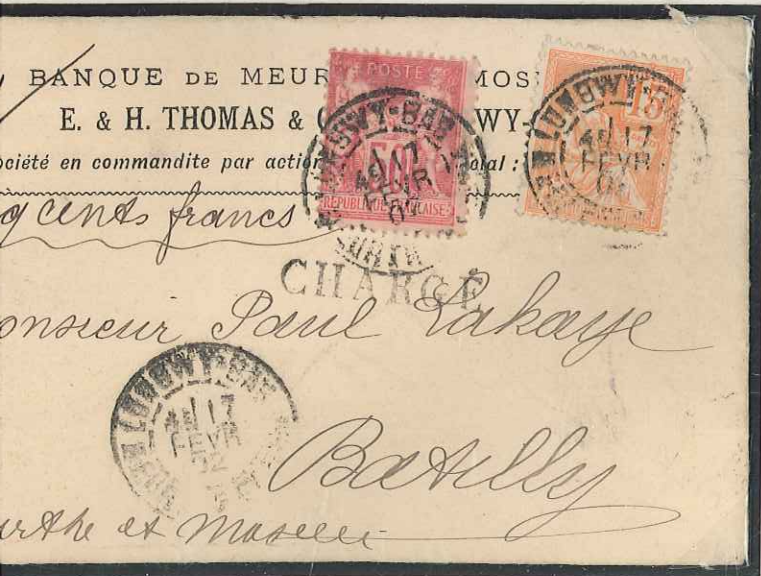 BANQUE DE MEUR MOS
E. & H. THOMAS & C WY
ociété en commandite par action ial :
POSTE
50
REPUBLIQUE FRANÇAISE
15
LONGWY-BAS
17
FEVR
LONGWY-BAS
17
FEVR
q cents francs
CHARGÉ
onsieur Paul Lahaye
LONGWY-BAS
17
FEVR
Batilly
urthe et Moselle